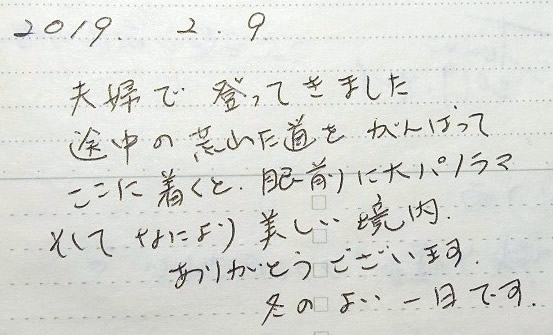 2019. 2. 9
夫婦で登ってきました
途中の荒れた道をがんばって
ここに着くと、眼前に大パノラマ
そしてなにより美しい境内.
ありがとうございます.
冬のよい一日です.